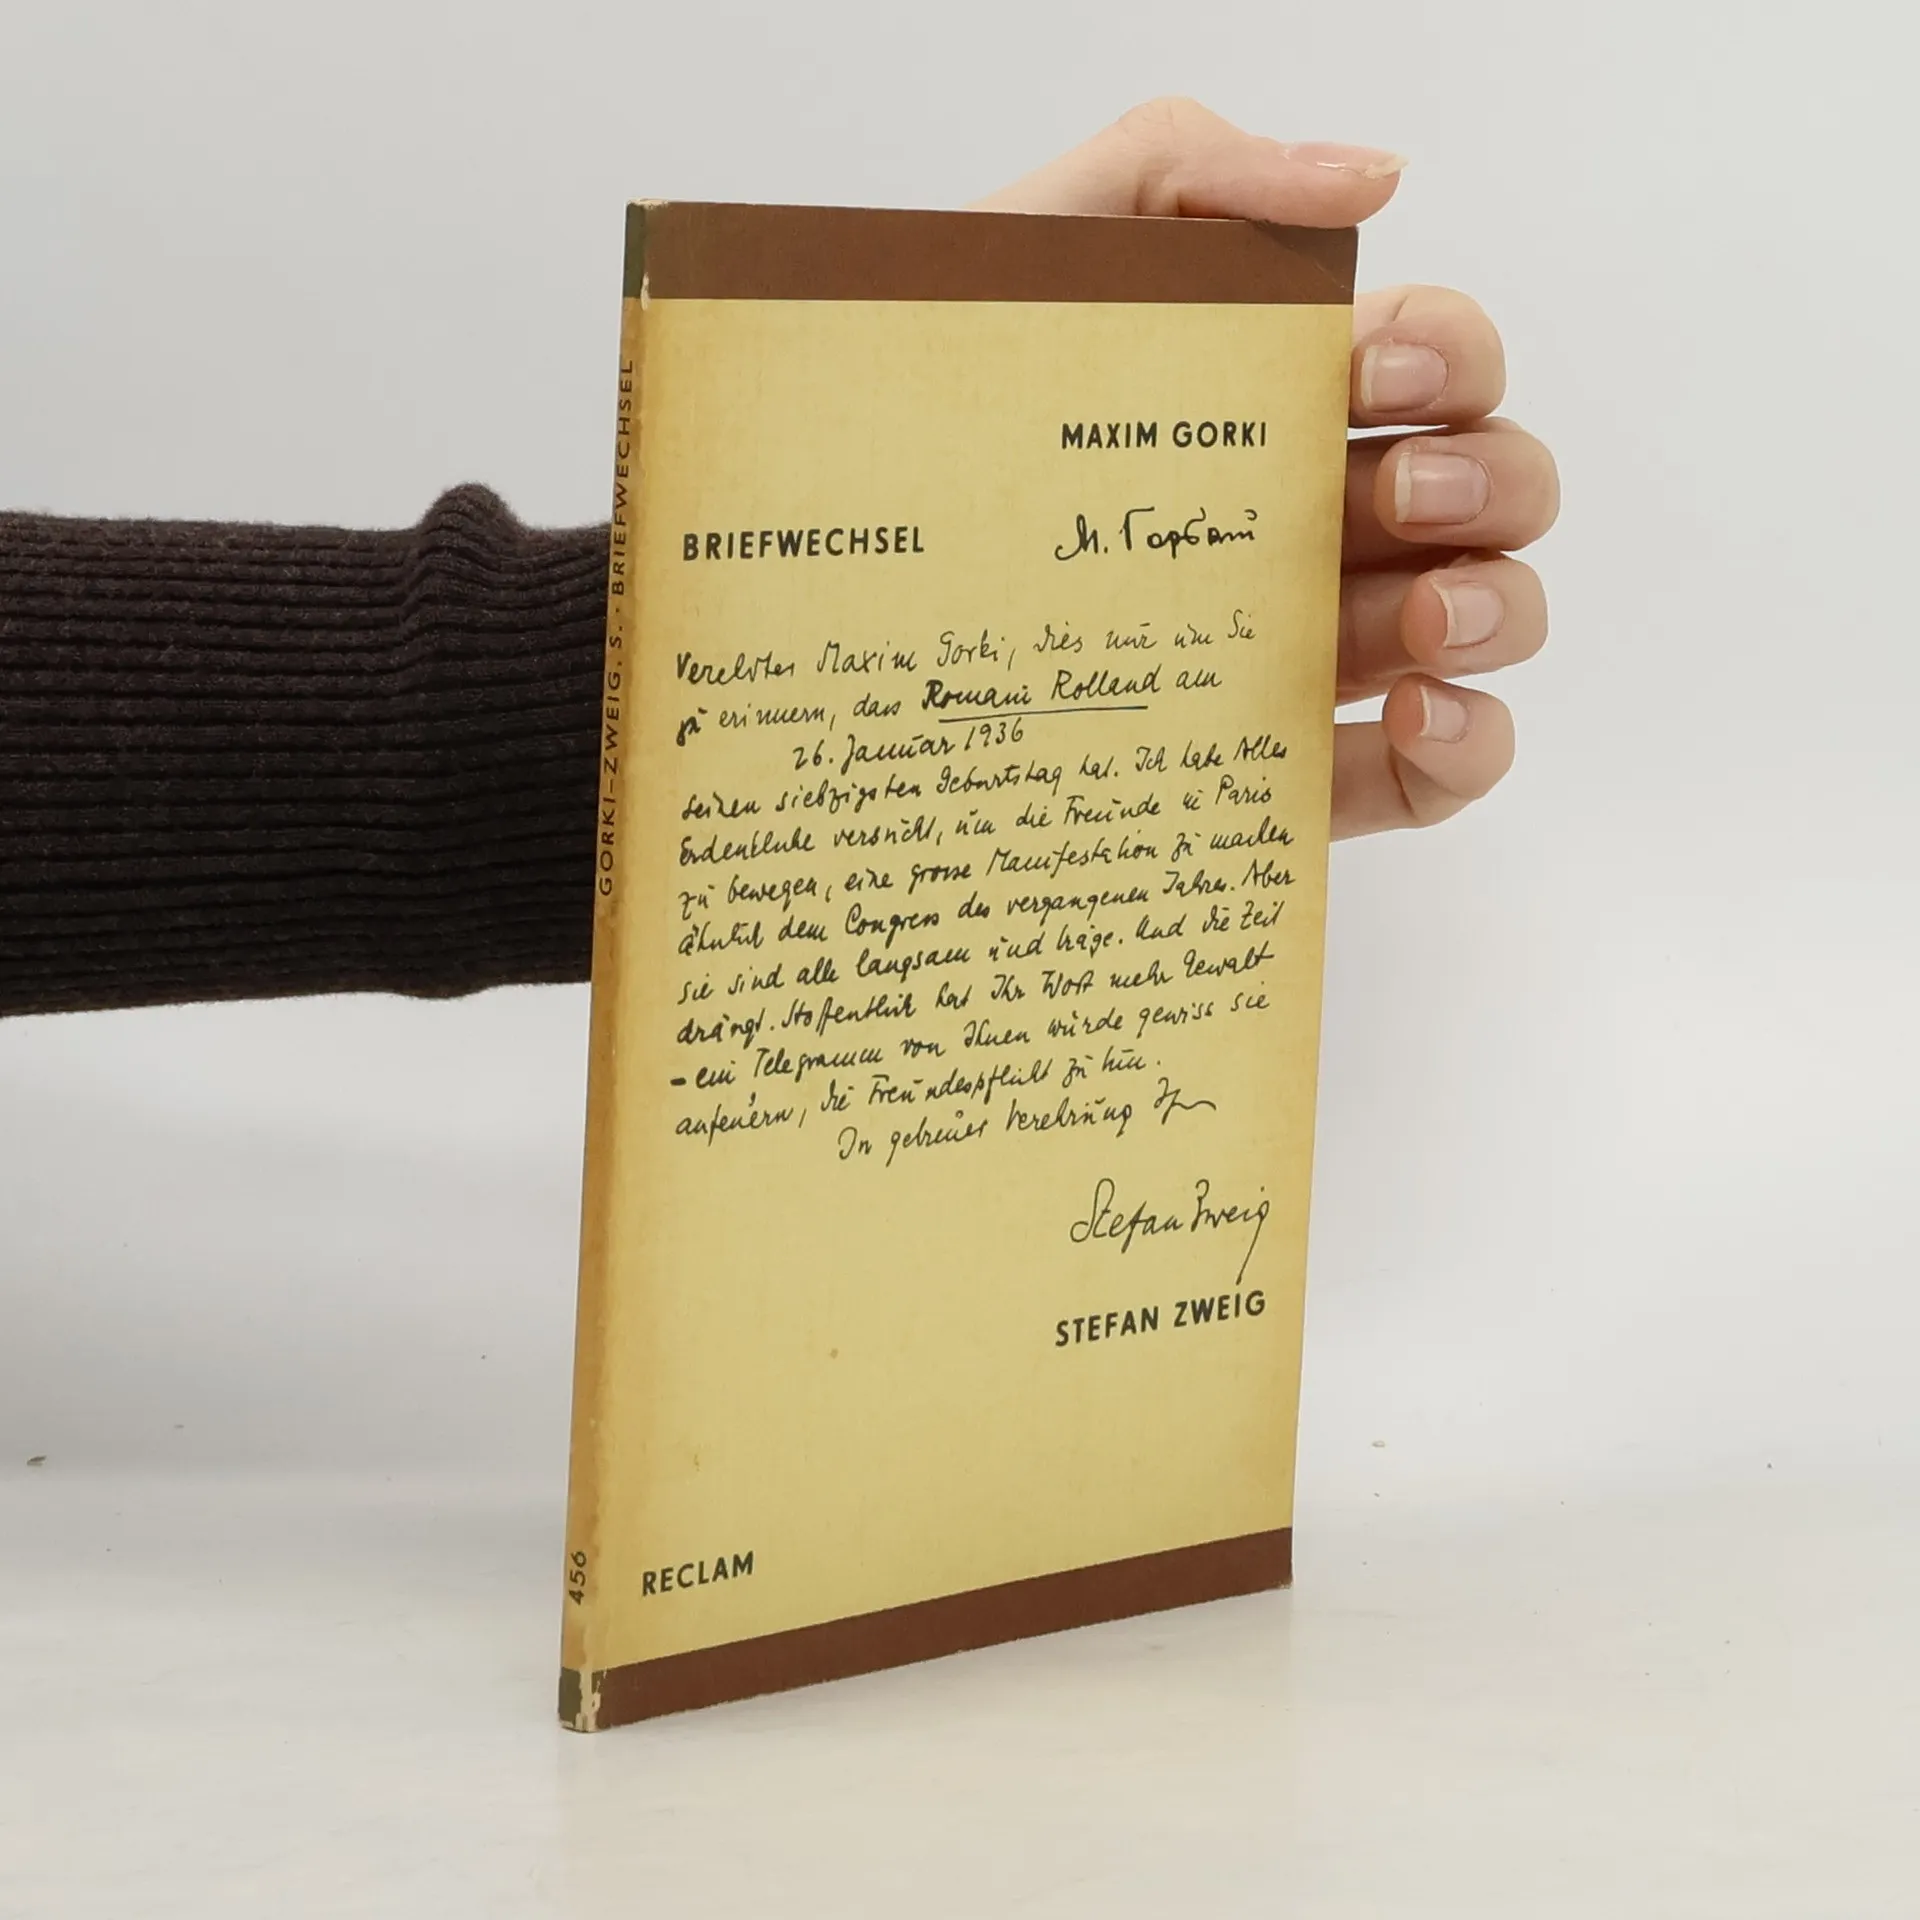 MAXIM GORKI
BRIEFWECHSEL
М. Горький
Verehrter Maxim Gorki, dies nur um Sie
zu erinnern, dass Romain Rolland am
26. Januar 1936
seinen siebzigsten Geburtstag hat. Ich habe Alles
Erdenkliche versucht, um die Freunde in Paris
zu bewegen, eine grosse Manifestation zu machen
ähnlich dem Congress des vergangenen Jahres. Aber
sie sind alle langsam und träge. Und die Zeit
drängt. Hoffentlich hat Ihr Wort mehr Gewalt
- ein Telegramm von Ihnen würde gewiss sie
anfeuern, die Freundespflicht zu tun.
In getreuer Verehrung Ihr
Stefan Zweig
STEFAN ZWEIG
RECLAM
GORKI–ZWEIG, S. · BRIEFWECHSEL
456